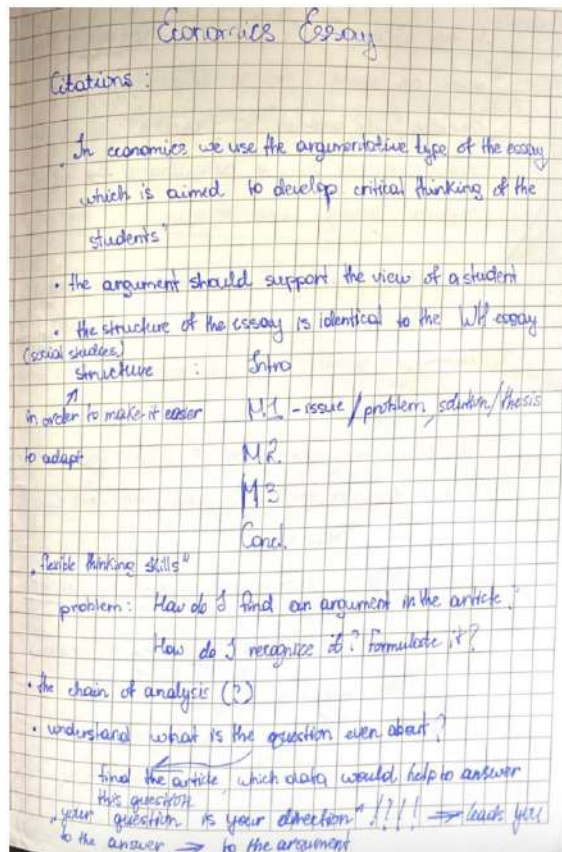 Economics Essay
Citations :
„In economics we use the argumentative type of the essay
which is aimed to develop critical thinking of the
students"
• the argument should support the view of a student
• the structure of the essay is identical to the WH essay
(social studies)
structure : Intro
in order to make it easier M1 - issue / problem, solution / thesis
to adapt M2
M3
Concl.
„flexible thinking skills"
problem: How do I find an argument in the article?
How do I recognize it? Formulate it?
• the chain of analysis (?)
• understand what is the question even about?
find the article, which data would help to answer
this question
„your question is your direction" !?!! → leads you
to the answer → to the argument